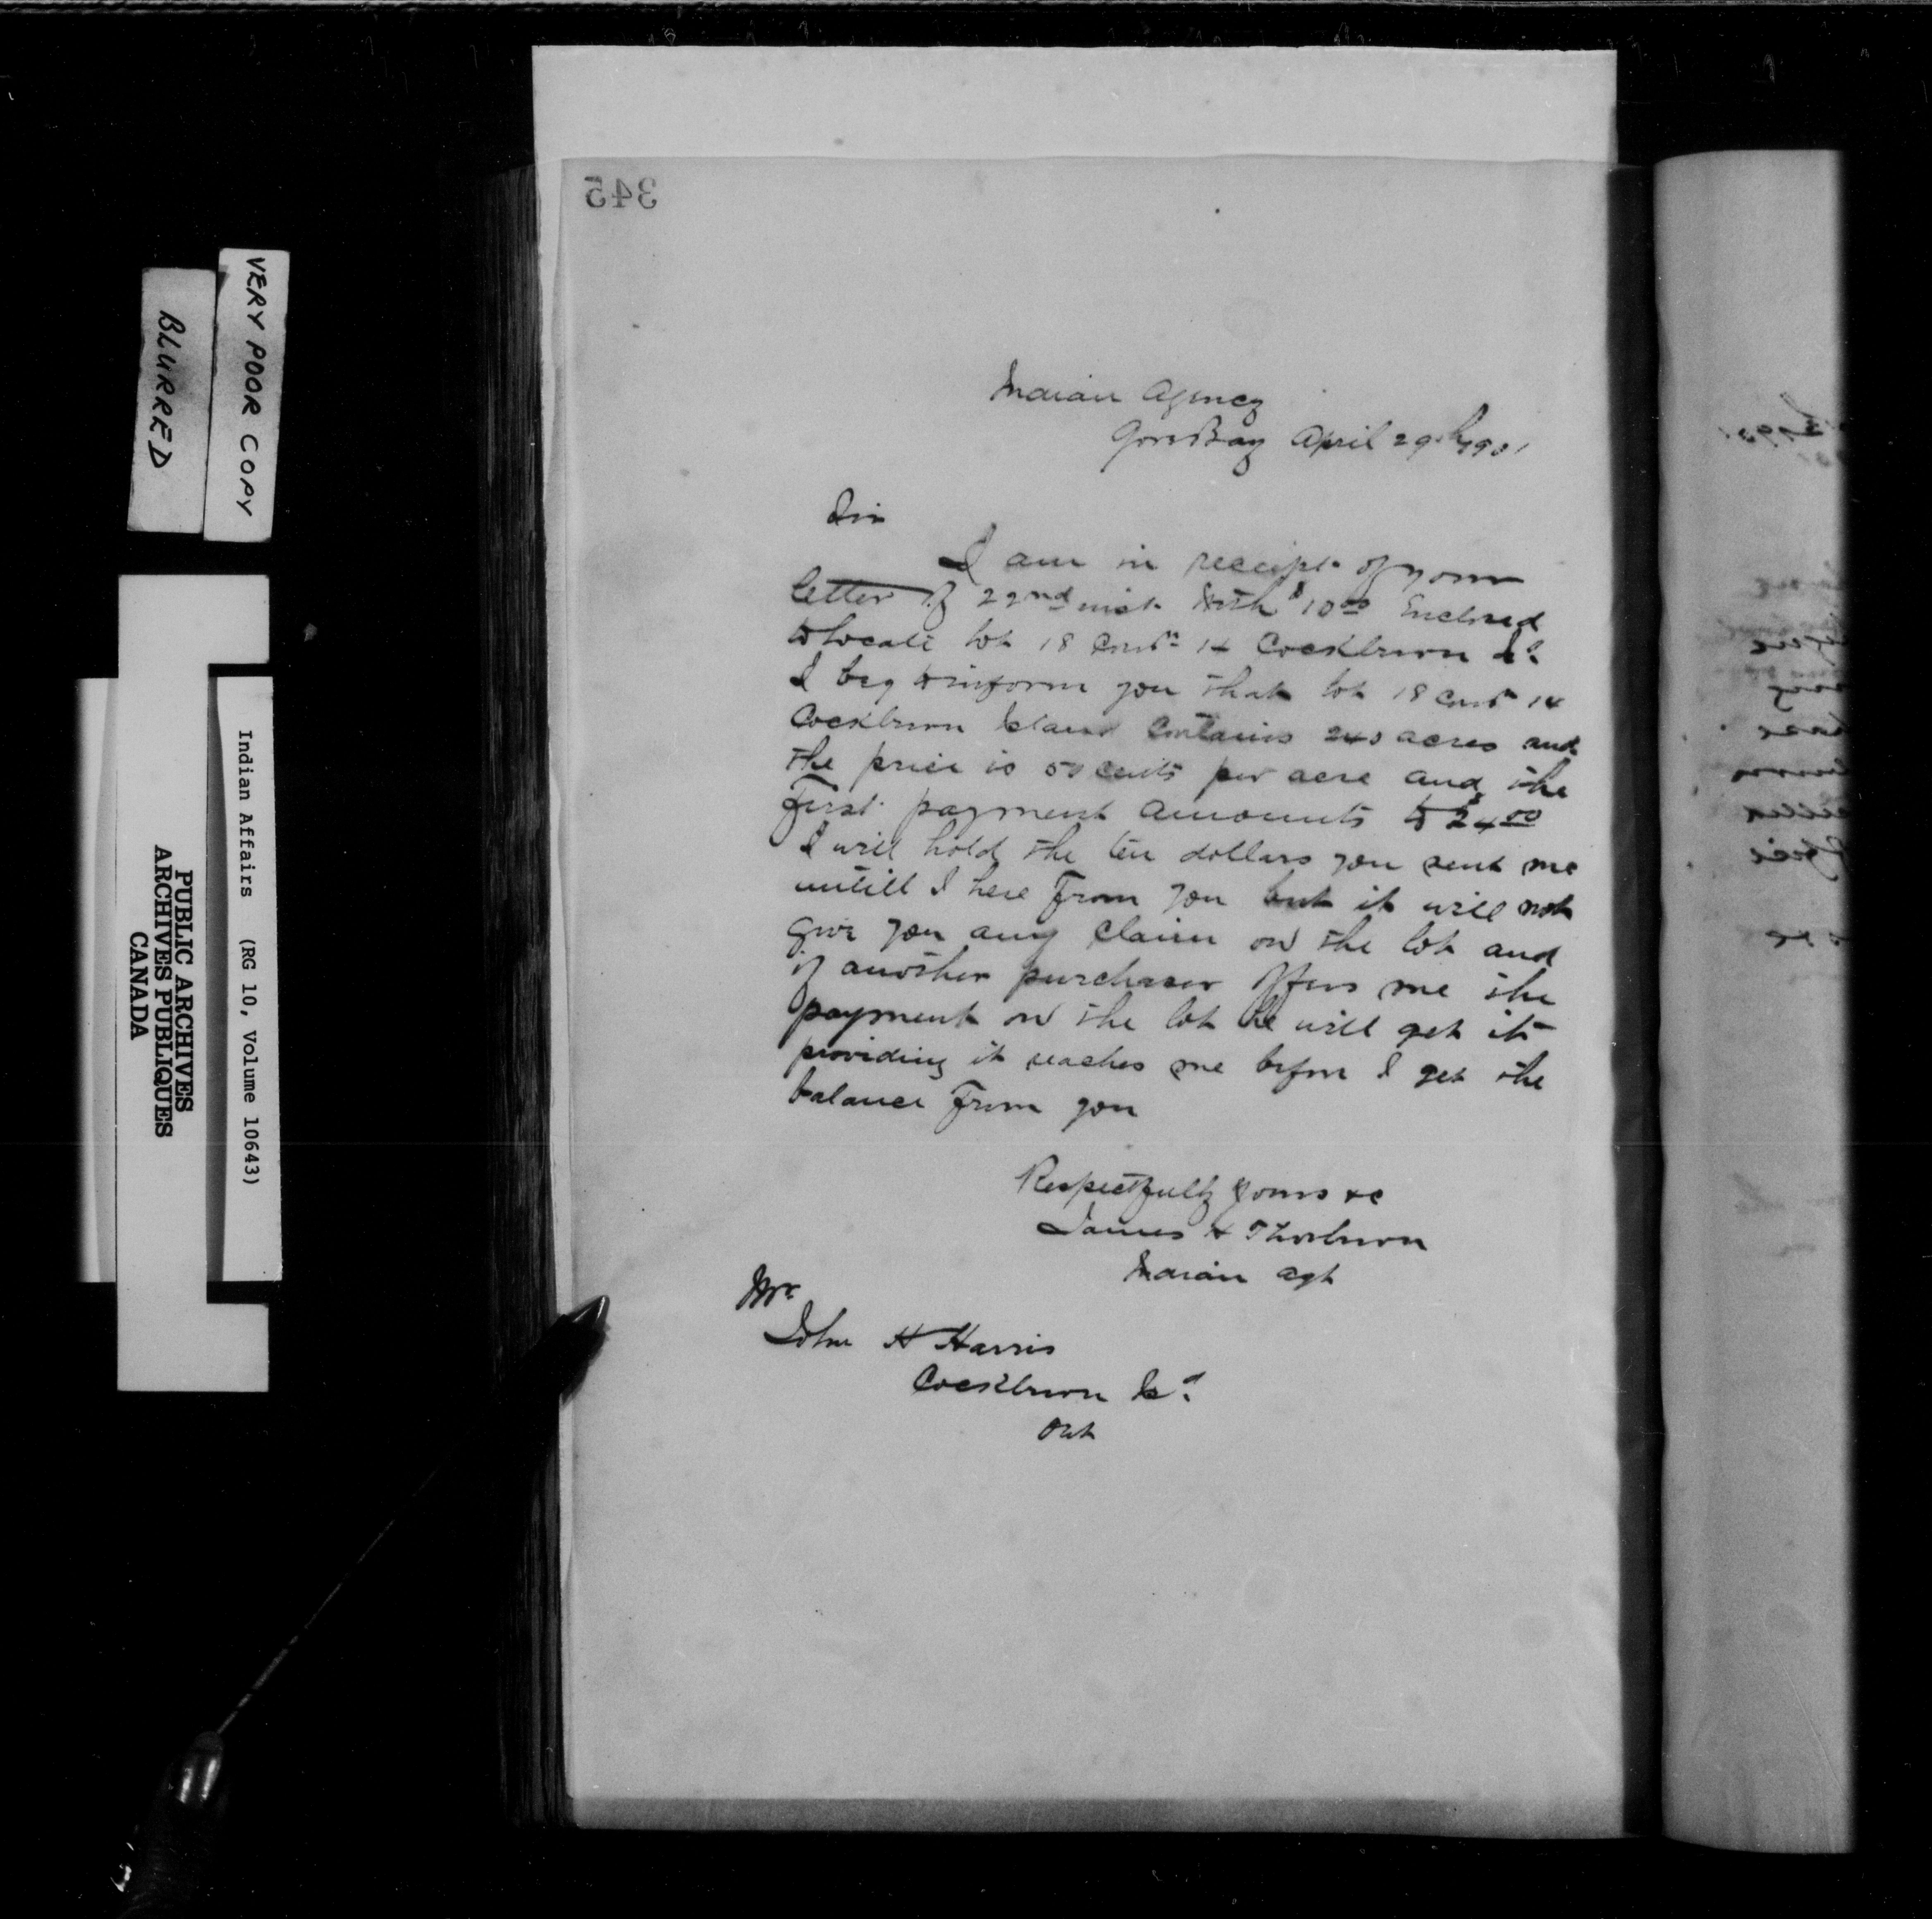 345
Indian Agency
Gore Bay April 29th 1901
Sir
I am in receipt of your
letter of 22nd inst with $10.00 Enclosed
to locate lot 18 Con 14 Cockburn Id
I beg to inform you that lot 18 Con 14
Cockburn Island Contains 240 acres and
the price is 50 cents per acre and the
First payment amounts to $24.00
I will hold the ten dollars you sent me
untill I here From you but it will not
give you any claim on the lot and
if another purchaser offers me the
payment on the lot he will get it
providing it reaches me before I get the
balance From you
Respectfully yours &c
James H Thorburn
Indian Agt
Mr.
John H Harris
Cockburn Id
Ont
VERY POOR COPY
BLURRED
Indian Affairs (RG 10, Volume 10643)
PUBLIC ARCHIVES
ARCHIVES PUBLIQUES
CANADA